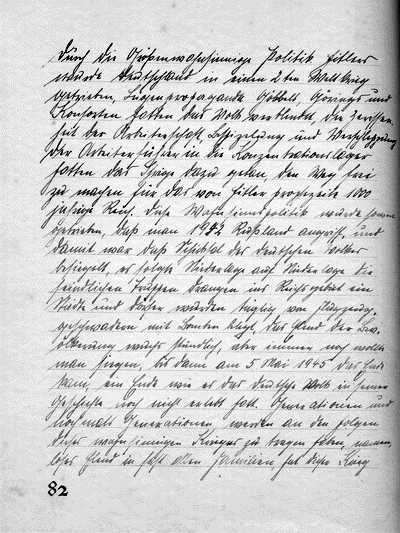 Durch die Größenwahnsinnige Politik Hitlers
wurde Deutschland in einen 2ten Weltkrieg
getrieben, Lügenpropaganda Göbbels, Görings und
Konsorten hatten das Volk verblendet, die Zerrissen-
heit der Arbeiterschaft, Bespitzelung und Verschleppung
der Arbeiterführer in die Konzentrationslager
hatten das Übrige dazu getan, den Weg frei
zu machen für das von Hitler prophezeite 1000
jährige Reich. Diese Wahnsinnspolitik wurde soweit
getrieben, daß man 1942 Rußland angriff, und
damit war das Schicksal des deutschen Volkes
besiegelt, es folgte Niederlage auf Niederlage die
feindlichen Truppen drangen ins Reichsgebiet ein
Städte und Dörfer wurden täglich von Flugzeug-
geschwadern mit Bomben belegt, das Elend der Bev-
ölkerung wuchs stündlich, aber immer noch wollte
man siegen, bis dann am 5 Mai 1945 das Ende
kam, ein Ende wie es das deutsche Volk in seiner
Geschichte noch nicht erlebt hatt. Generationen und
nochmals Generationen werden an den Folgen
dieses wahnsinnigen Krieges zu tragen haben, namen-
loses Elend in fast allen Familien hat dieser Krieg
82